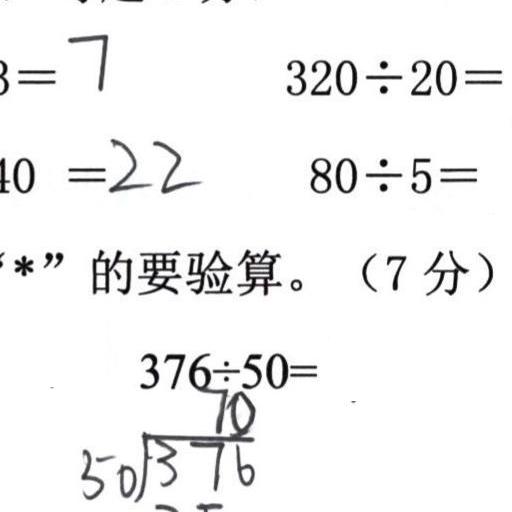 3=7 320÷20=
40 =22 80÷5=
“*”的要验算。（7 分）
376÷50=
70
50 376